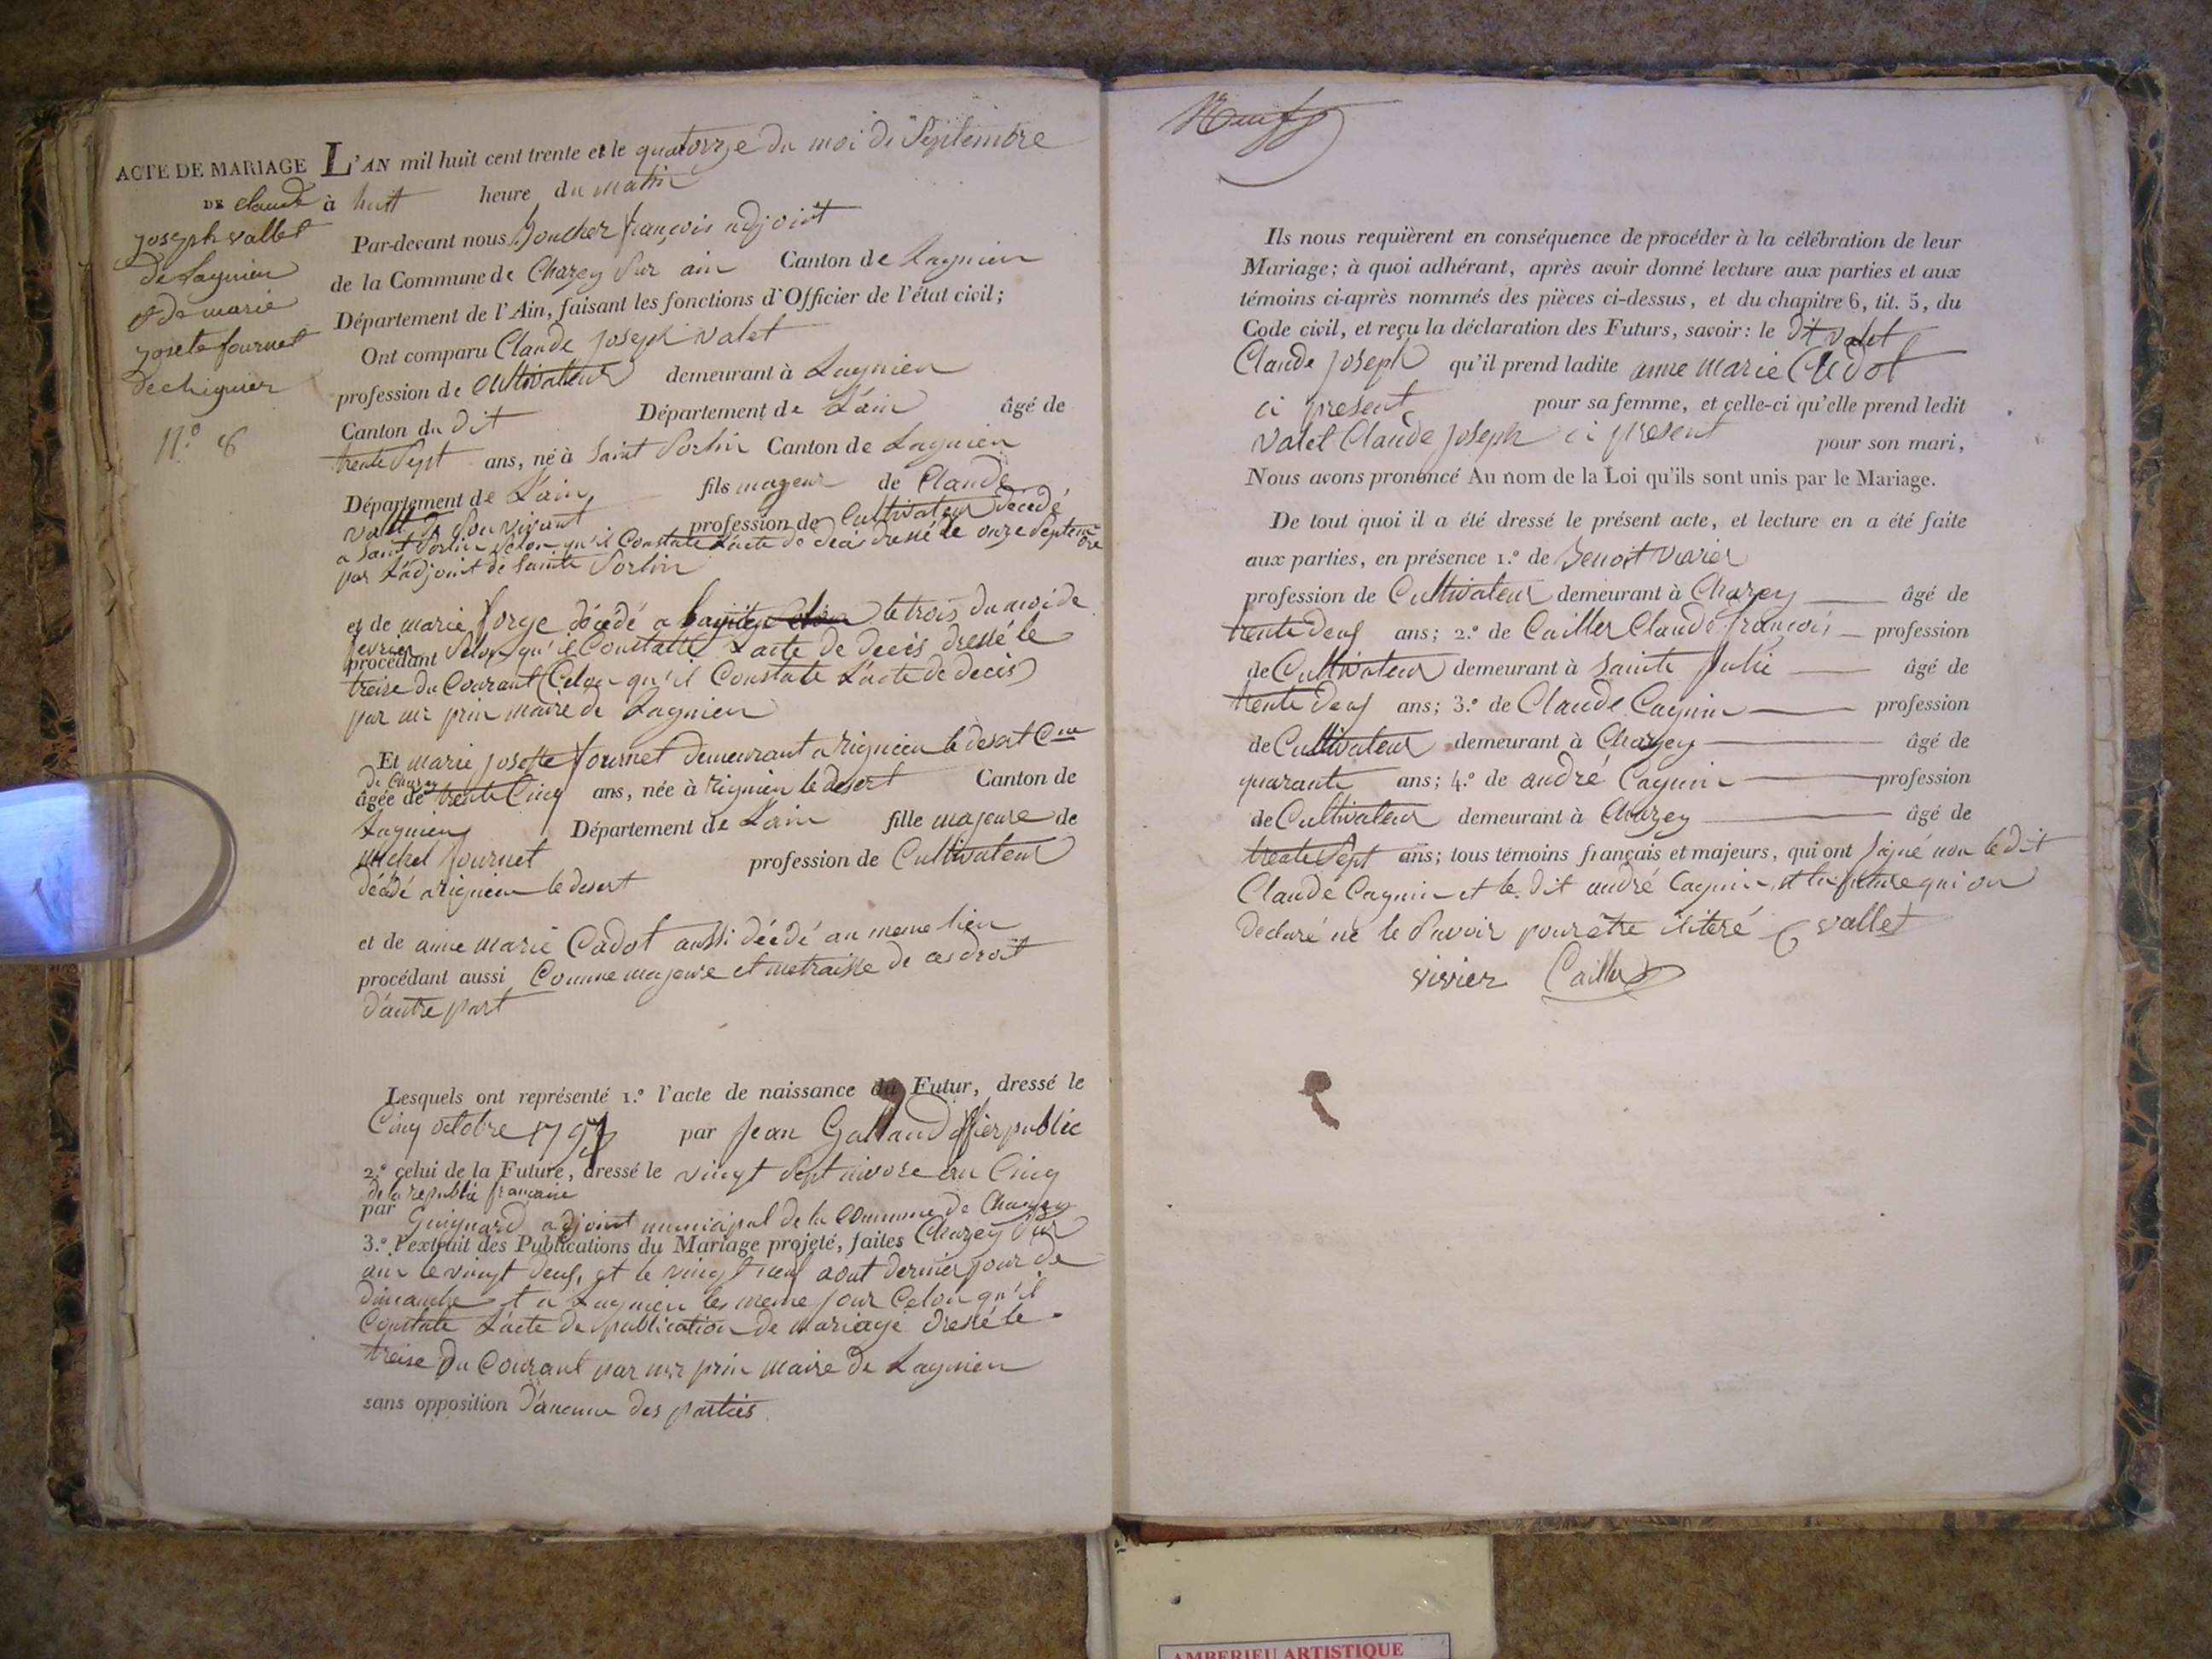 ACTE DE MARIAGE
DE Claude
joseph vallet
de Lagnieu
et de marie
josete fournet
de chignier
N.º 8
L'AN mil huit cent trente et le quatorze du moi de Septembre
à huit heure du matin
Par-devant nous Boucher françois adjoint
de la Commune de Chazey Sur ain Canton de Lagnieu
Département de l'Ain, faisant les fonctions d'Officier de l'état civil;
Ont comparu Claude joseph valet
profession de Cultivateur demeurant à Lagnieu
Canton du dit Département de L'ain âgé de
trente Sept ans, né à Saint Sorlin Canton de Lagnieu
Département de L'ain fils mageur de Claude
valet de Son vivant profession de Cultivateur décédé
a Saint Sorlin Selon qu'il Constate L'acte de decis dressé le onze Septembre
par L'adjoint de Sainte Sorlin
et de marie forge décedé a Lagnieu le trois du moi de
fevrier Selon qu'il Constatte L'acte de decés dressé le
procédant
treise du Courant (Celon qu'il Constate L'acte de decis)
par mr prin maire de Lagnieu
Et marie josette fournet demeurant a rignieu le desert Cne
de Chazey
âgée de trente Cinq ans, née à rignieu le desert Canton de
Lagnieu Département de L'ain fille majeure de
michel fournet profession de Cultivateur
décédé a rignieu le desert
et de anne marie Cadot aussi décédé au meme lieu
procédant aussi Comme majeure et metraisse de ces droit
d'autre part
Lesquels ont représenté 1.º l'acte de naissance du Futur, dressé le
Cinq octobre 1793 par Jean Galland offier public
2.º celui de la Future, dressé le vingt Sept nivose an Cinq
de la republic francaise
par Guignard adjoint municipal de la commune de Chazey
3.º l'extrait des Publications du Mariage projeté, faites Chazey Sur
ain le vingt deus, et le vingt neuf aout dernier jour de
dimanche et a Lagnieu les meme jour Celon qu'il
Constate L'acte de publication de mariage dressé le
treise Du Courant par mr prin maire de Lagnieu
sans opposition d'aucune des parties
Neuf
Ils nous requièrent en conséquence de procéder à la célébration de leur
Mariage; à quoi adhérant, après avoir donné lecture aux parties et aux
témoins ci-après nommés des pièces ci-dessus, et du chapitre 6, tit. 5, du
Code civil, et reçu la déclaration des Futurs, savoir: le dit valet
Claude joseph qu'il prend ladite anne marie Cadot
ci present pour sa femme, et celle-ci qu'elle prend ledit
valet Claude joseph ci present pour son mari,
Nous avons prononcé Au nom de la Loi qu'ils sont unis par le Mariage.
De tout quoi il a été dressé le présent acte, et lecture en a été faite
aux parties, en présence 1.º de Benoit vivier
profession de Cultivateur demeurant à Chazey âgé de
trente deus ans; 2.º de Cailler Claude françois profession
de Cultivateur demeurant à Sainte Julie âgé de
trente deus ans; 3.º de Claude Cagnin profession
de Cultivateur demeurant à Chazey âgé de
quarante ans; 4.º de andré Cagnin profession
de Cultivateur demeurant à Chazey âgé de
trente Sept ans; tous témoins français et majeurs, qui ont Signé non le dit
Claude Cagnin et le dit andré Cagnin et la future qui on
declaré ne le Savoir pour être iliteré C vallet
vivier Cailler
AMBERIEU ARTISTIQUE